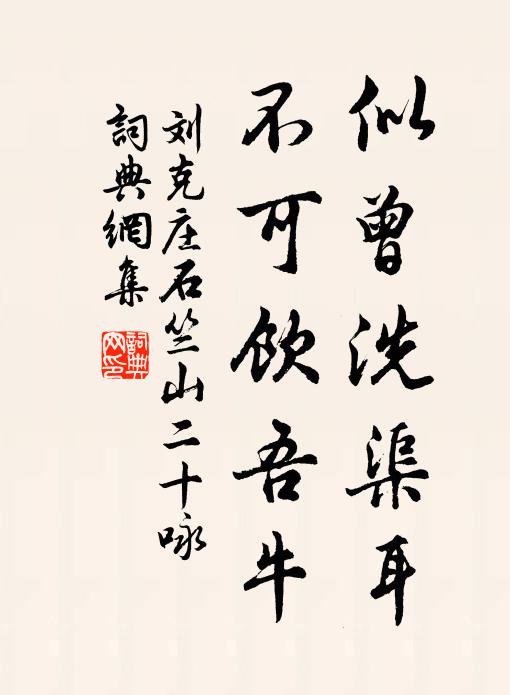 似曾洗渠耳
不可飲吾牛
刘克庄石竺山二十咏
詞典網集
詞典網印